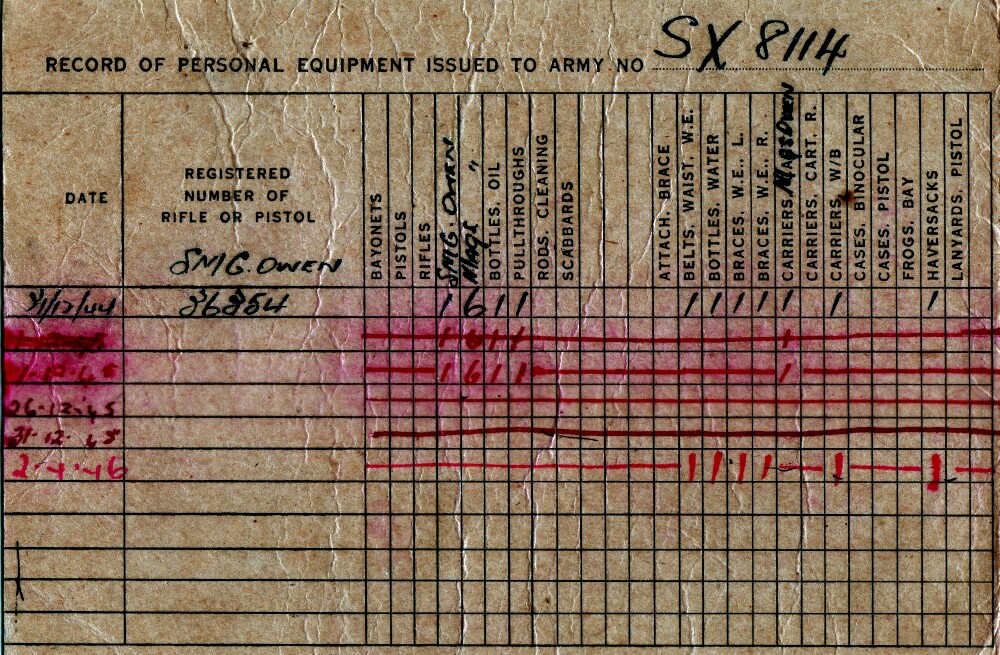 RECORD OF PERSONAL EQUIPMENT ISSUED TO ARMY NO SX 8114
DATE
REGISTERED
NUMBER OF
RIFLE OR PISTOL
SMG. OWEN
BAYONETS
PISTOLS
RIFLES
SMG. OWEN
Mags "
BOTTLES, OIL
PULLTHROUGHS
RODS, CLEANING
SCABBARDS
ATTACH. BRACE
BELTS, WAIST, W.E.
BOTTLES, WATER
BRACES, W.E., L.
BRACES, W.E., R.
CARRIERS, MAGS OWEN
CARRIERS, CART. R.
CARRIERS, W/B
CASES, BINOCULAR
CASES, PISTOL
FROGS, BAY
HAVERSACKS
LANYARDS, PISTOL
1 6 1 1 1 1 1 1 1 1 1
1 6 1 1 1
1 6 1 1 1
26.12.45
31.12.45
2.4.46 1 1 1 1 1 1